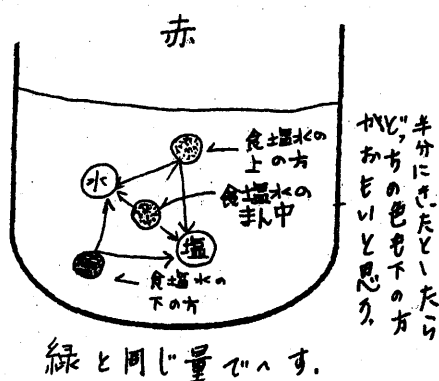 赤
食塩水の
上の方
水
食塩水の
まん中
塩
食塩水の
下の方
半分にきったとしたら
どっちの色も下の方
がおもいと思う。
緑と同じ量でへす。